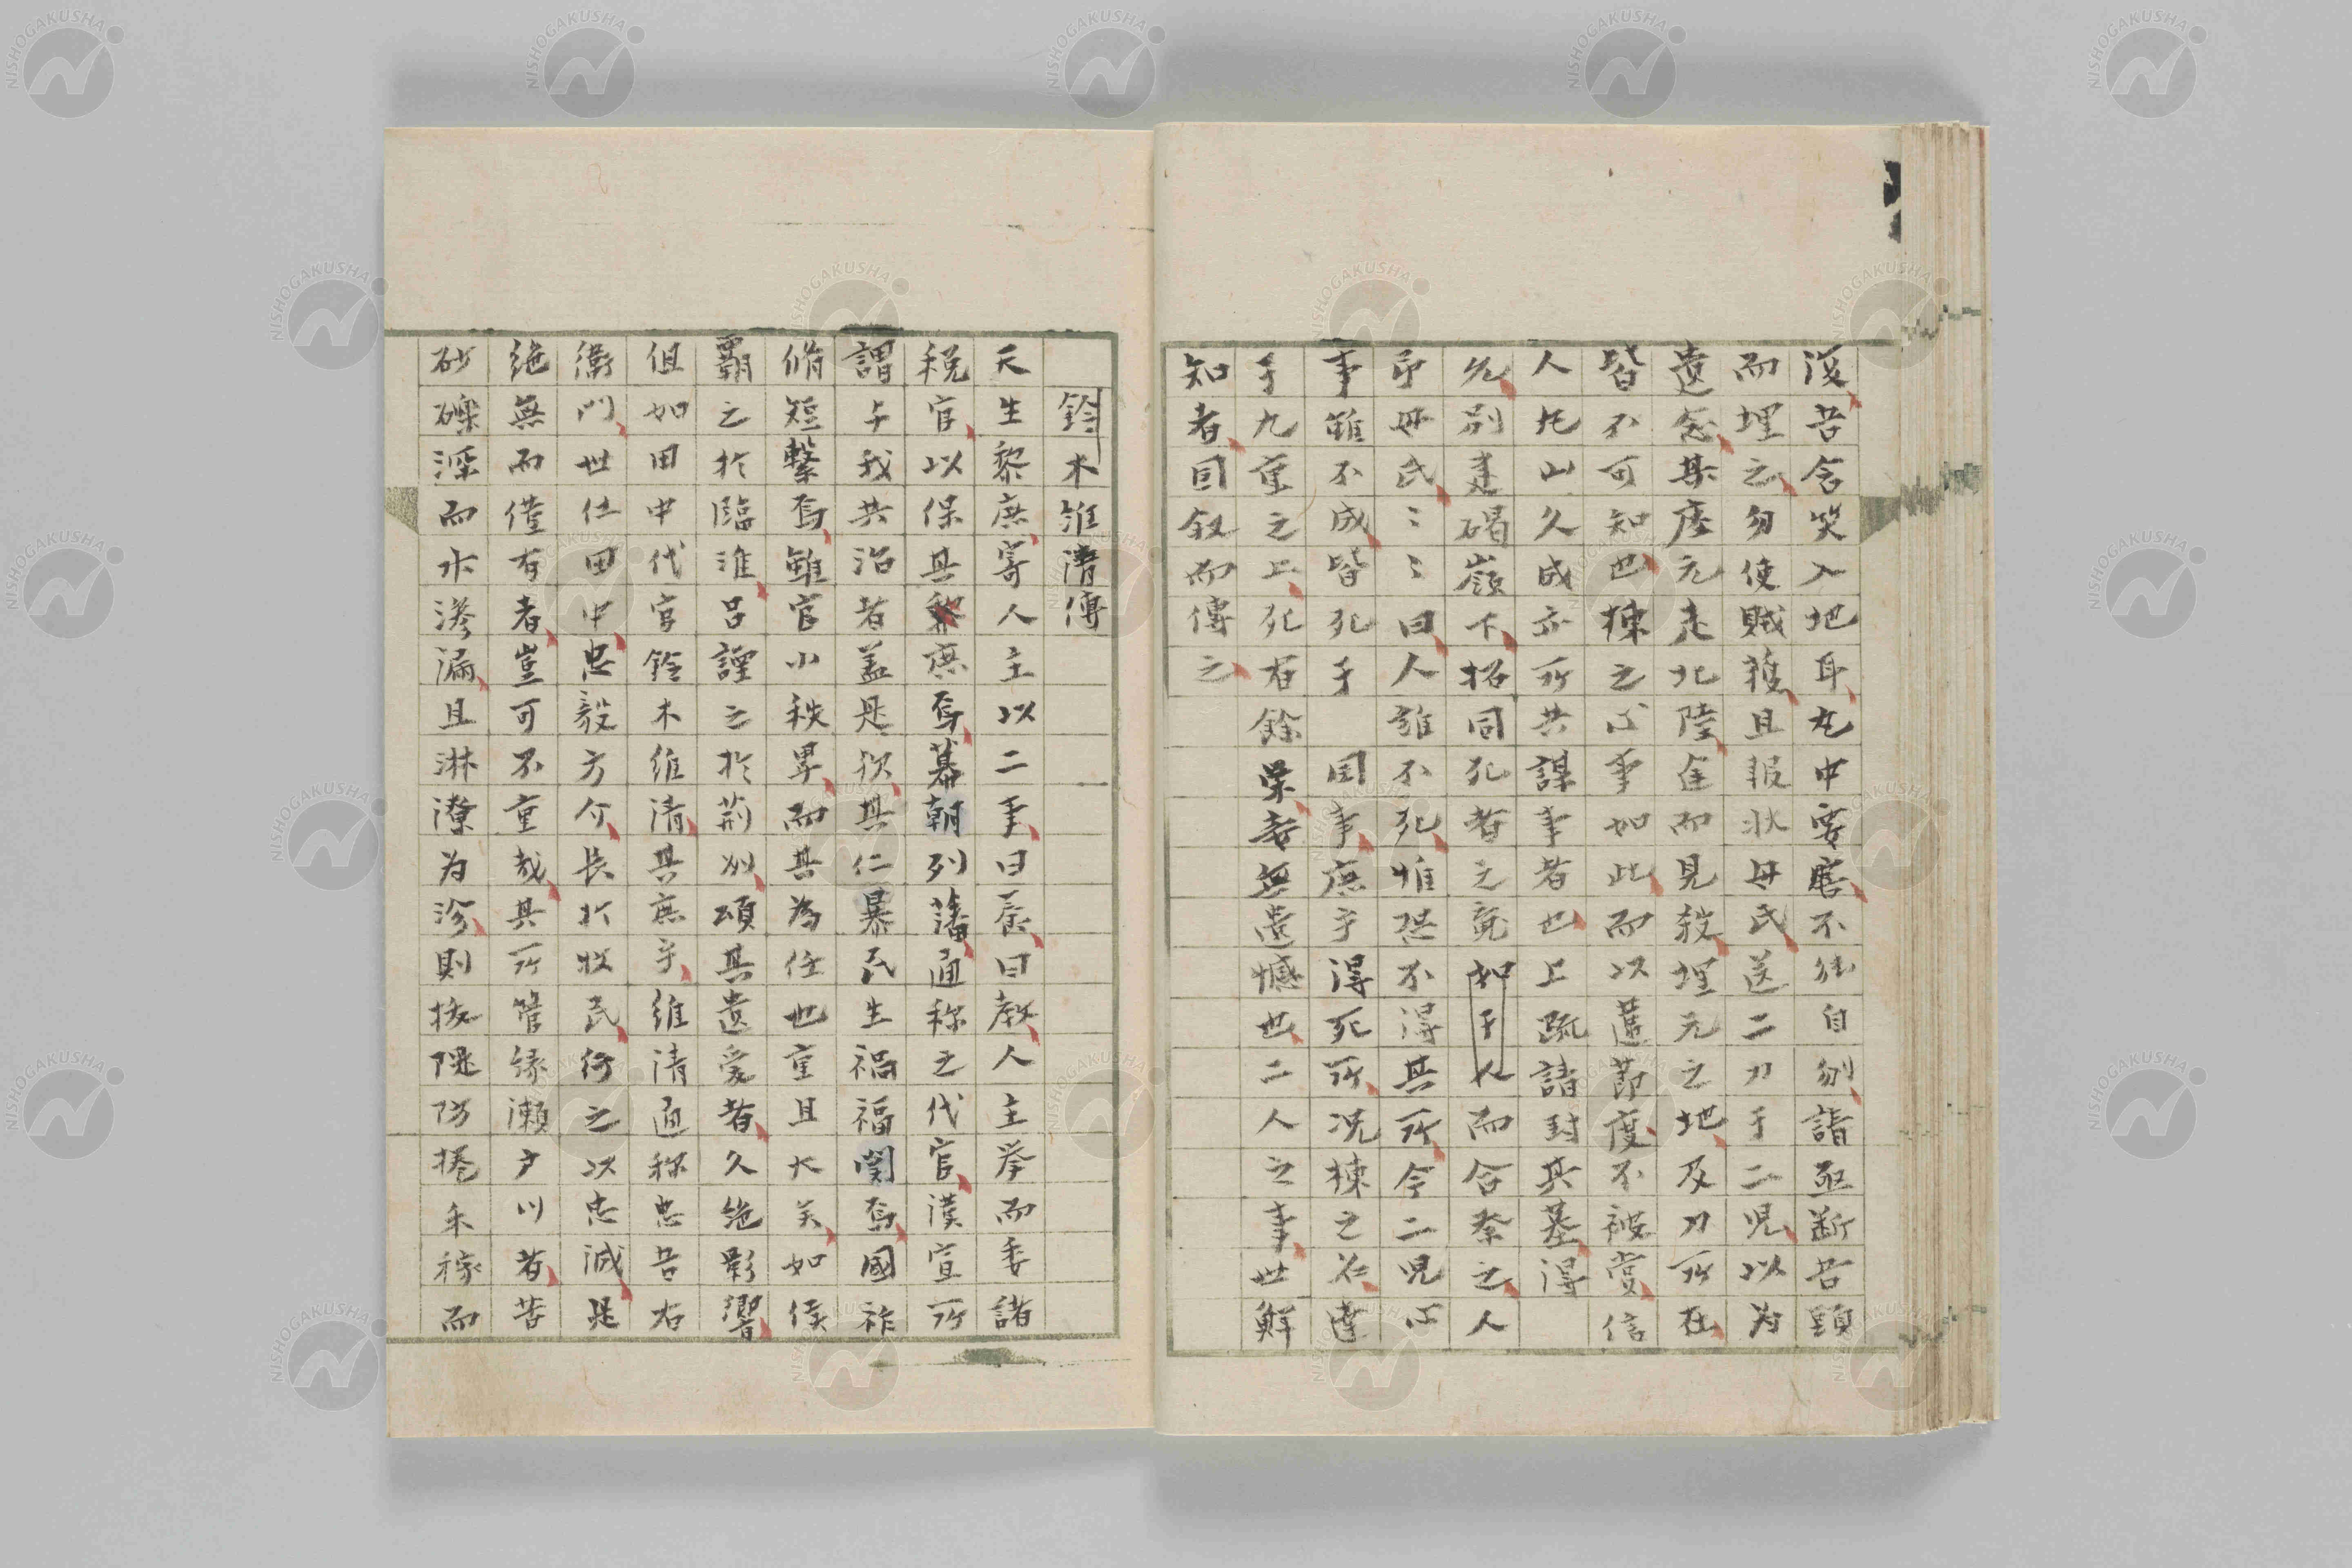 後苦含笑入地耳丸中要害不能自刎請亟斷吾頭
而埋之勿使賊獲且報狀母氏送二刀于二児以為
遺念某慶元走北陸逢而見殺埋元之地及刀所在
皆不可知也棟之心事如此而以蓮節度不被賞信
人北山久成亦所共謀事者也上疏諸封其墓得
允別建碣嶺下招同死者之霓和于人而合祭之人
弔母氏〻〻曰人誰不死惟恐不得其所今二児心
事雖不成皆死于 国事庶乎得死所況棟之名達
于九重之上死有餘栄幸無遺憾也二人之事世鮮
知者因叙而傳之
鈴木維清傳
天生黎庶寄人主以二事曰養曰教人主挙而委諸
税官以保其黎庶焉幕朝列藩通称之代官漢宣所
謂与我共治者蓋是歟其仁暴民生福福関焉國祚
脩短繋焉雖官小秩卑而其為任也重且大矣如侯
覇之於臨淮呂諲之於荊州頌其遺愛者久絶影響
但如田中代官鈴木維清其庶乎維清通称忠吾右
衛門世仕田中忠毅方介長於牧民行之以忠誠是
絶無而僅有者豈可不重哉其所管縁瀬戸川者苦
砂礫淫而水滲漏且淋潦為沴則抜隄防捲禾稼而
NISHOGAKUSHA